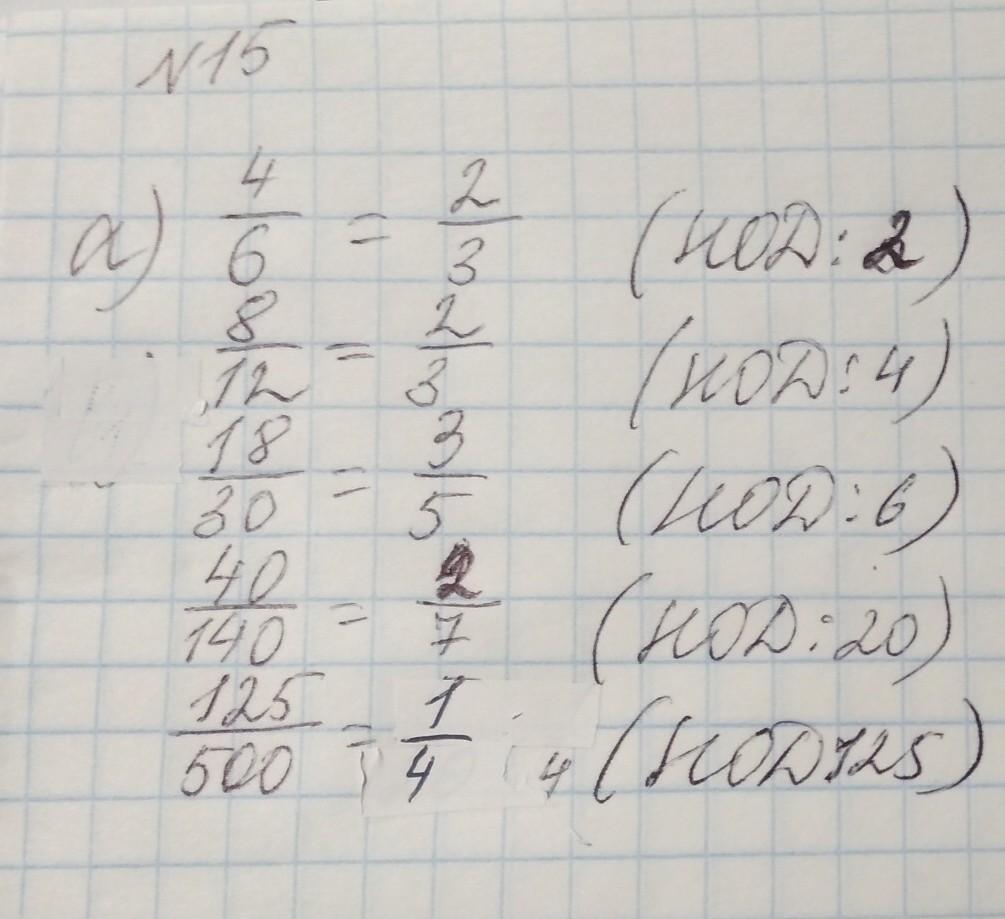 N15
а) 4/6 = 2/3 (НОД: 2)
8/12 = 2/3 (НОД: 4)
18/30 = 3/5 (НОД: 6)
40/140 = 2/7 (НОД: 20)
125/500 = 1/4 4 (НОД 125)